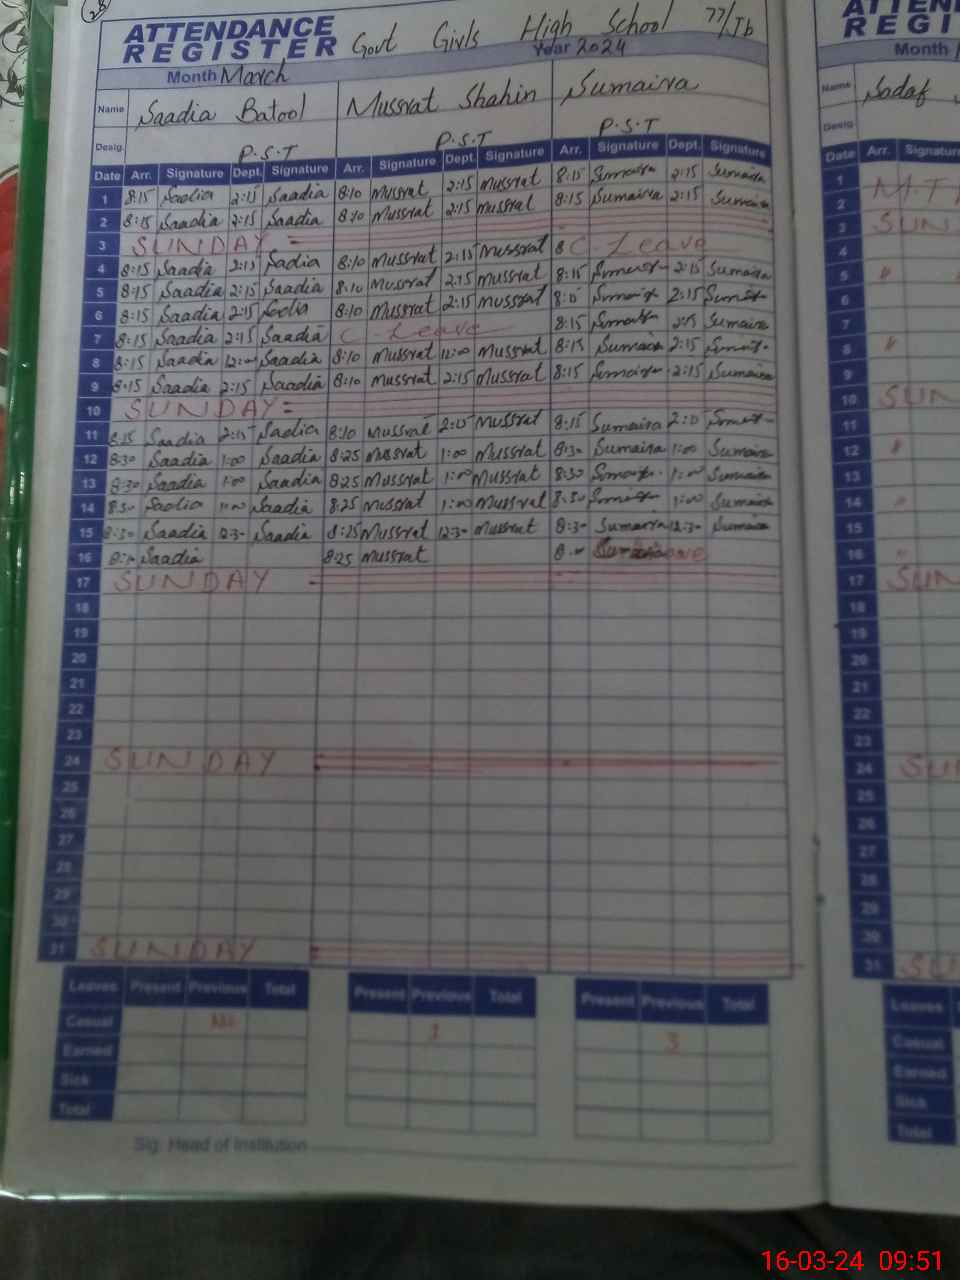 28
ATTENDANCE
REGISTER Govt Girls High School 77/Tb
Month March Year 2024
Name Saadia Batool Mussrat Shahin Sumaira
Desig. P.S.T P.S.T P.S.T
Date Arr. Signature Dept. Signature Arr. Signature Dept. Signature Arr. Signature Dept. Signature
1 8:15 Saadia 2:15 Saadia 8:10 Mussrat 2:15 Mussrat 8:15 Sumaira 2:15 Sumaira
2 8:15 Saadia 2:15 Saadia 8:10 Mussrat 2:15 Mussrat 8:15 Sumaira 2:15 Sumaira
3 SUNDAY
4 8:15 Saadia 2:15 Sadia 8:10 Mussrat 2:15 Mussrat 8 C-Leave
5 8:15 Saadia 2:15 Saadia 8:10 Mussrat 2:15 Mussrat 8:15 Sumaira 2:15 Sumaira
6 8:15 Saadia 2:15 Sadia 8:10 Mussrat 2:15 Mussrat 8:15 Sumaira 2:15 Sumaira
7 8:15 Saadia 2:15 Saadia C-Leave 8:15 Sumaira 2:15 Sumaira
8 8:15 Saadia 12:00 Saadia 8:10 Mussrat 12:00 Mussrat 8:15 Sumaira 2:15 Sumaira
9 8:15 Saadia 2:15 Saadia 8:10 Mussrat 2:15 Mussrat 8:15 Sumaira 2:15 Sumaira
10 SUNDAY
11 8:15 Saadia 2:15 Sadia 8:10 Mussrat 2:15 Mussrat 8:15 Sumaira 2:15 Sumaira
12 8:30 Saadia 1:00 Saadia 8:25 Mussrat 1:00 Mussrat 8:30 Sumaira 1:00 Sumaira
13 8:30 Saadia 1:00 Saadia 8:25 Mussrat 1:00 Mussrat 8:30 Sumaira 1:00 Sumaira
14 8:30 Sadia 1:00 Saadia 8:25 Mussrat 1:00 Mussrat 8:30 Sumaira 1:00 Sumaira
15 8:30 Saadia 12:30 Saadia 8:25 Mussrat 12:30 Mussrat 8:30 Sumaira 12:30 Sumaira
16 Saadia 8:25 Mussrat 8
17 SUNDAY
18
19
20
21
22
23
24 SUNDAY
25
26
27
28
29
30
31 SUNDAY
Leaves Present Previous Total Present Previous Total Present Previous Total
Casual Nil 1 3
Earned
Sick
Total
Sig. Head of Institution
ATTEN
REGI
Month
Name Sadaf
Desig.
Date Arr. Signature
1 M.T
2
3 SUN
4
5 "
6
7
8 "
9
10 SUN
11
12 "
13
14 "
15
16 "
17 SUN
18
19
20
21
22
23
24 SU
25
26
27
28
29
30
31 SU
Leaves
Casual
Earned
Sick
Total
16-03-24 09:51